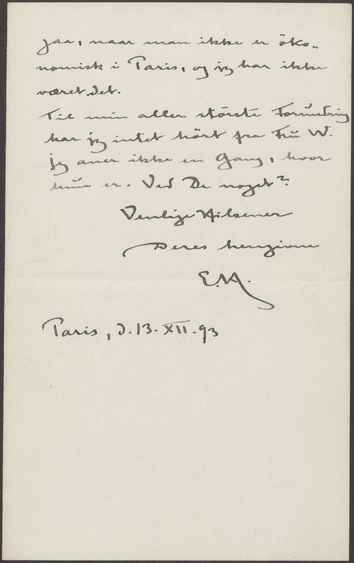 paa, naar man ikke er öko-
nomisk i Paris, og jeg har ikke
været det.
Til min aller störste Forundring
har jeg intet hört fra Frü W.
jeg aner ikke en Gang, hvor
hun er. Ved De noget?
Venlige Hilsener
Deres hengivne
E.M.
Paris, d. 13. XII. 93